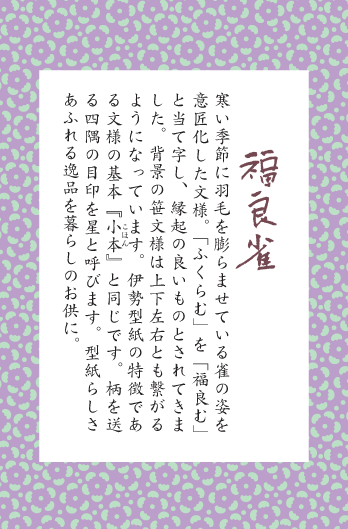 福良雀
寒い季節に羽毛を膨らませている雀の姿を
意匠化した文様。「ふくらむ」を「福良む」
と当て字し、縁起の良いものとされてきま
した。背景の笹文様は上下左右とも繋がる
ようになっています。伊勢型紙の特徴であ
る文様の基本『小本』と同じです。柄を送
こほん
る四隅の目印を星と呼びます。型紙らしさ
あふれる逸品を暮らしのお供に。